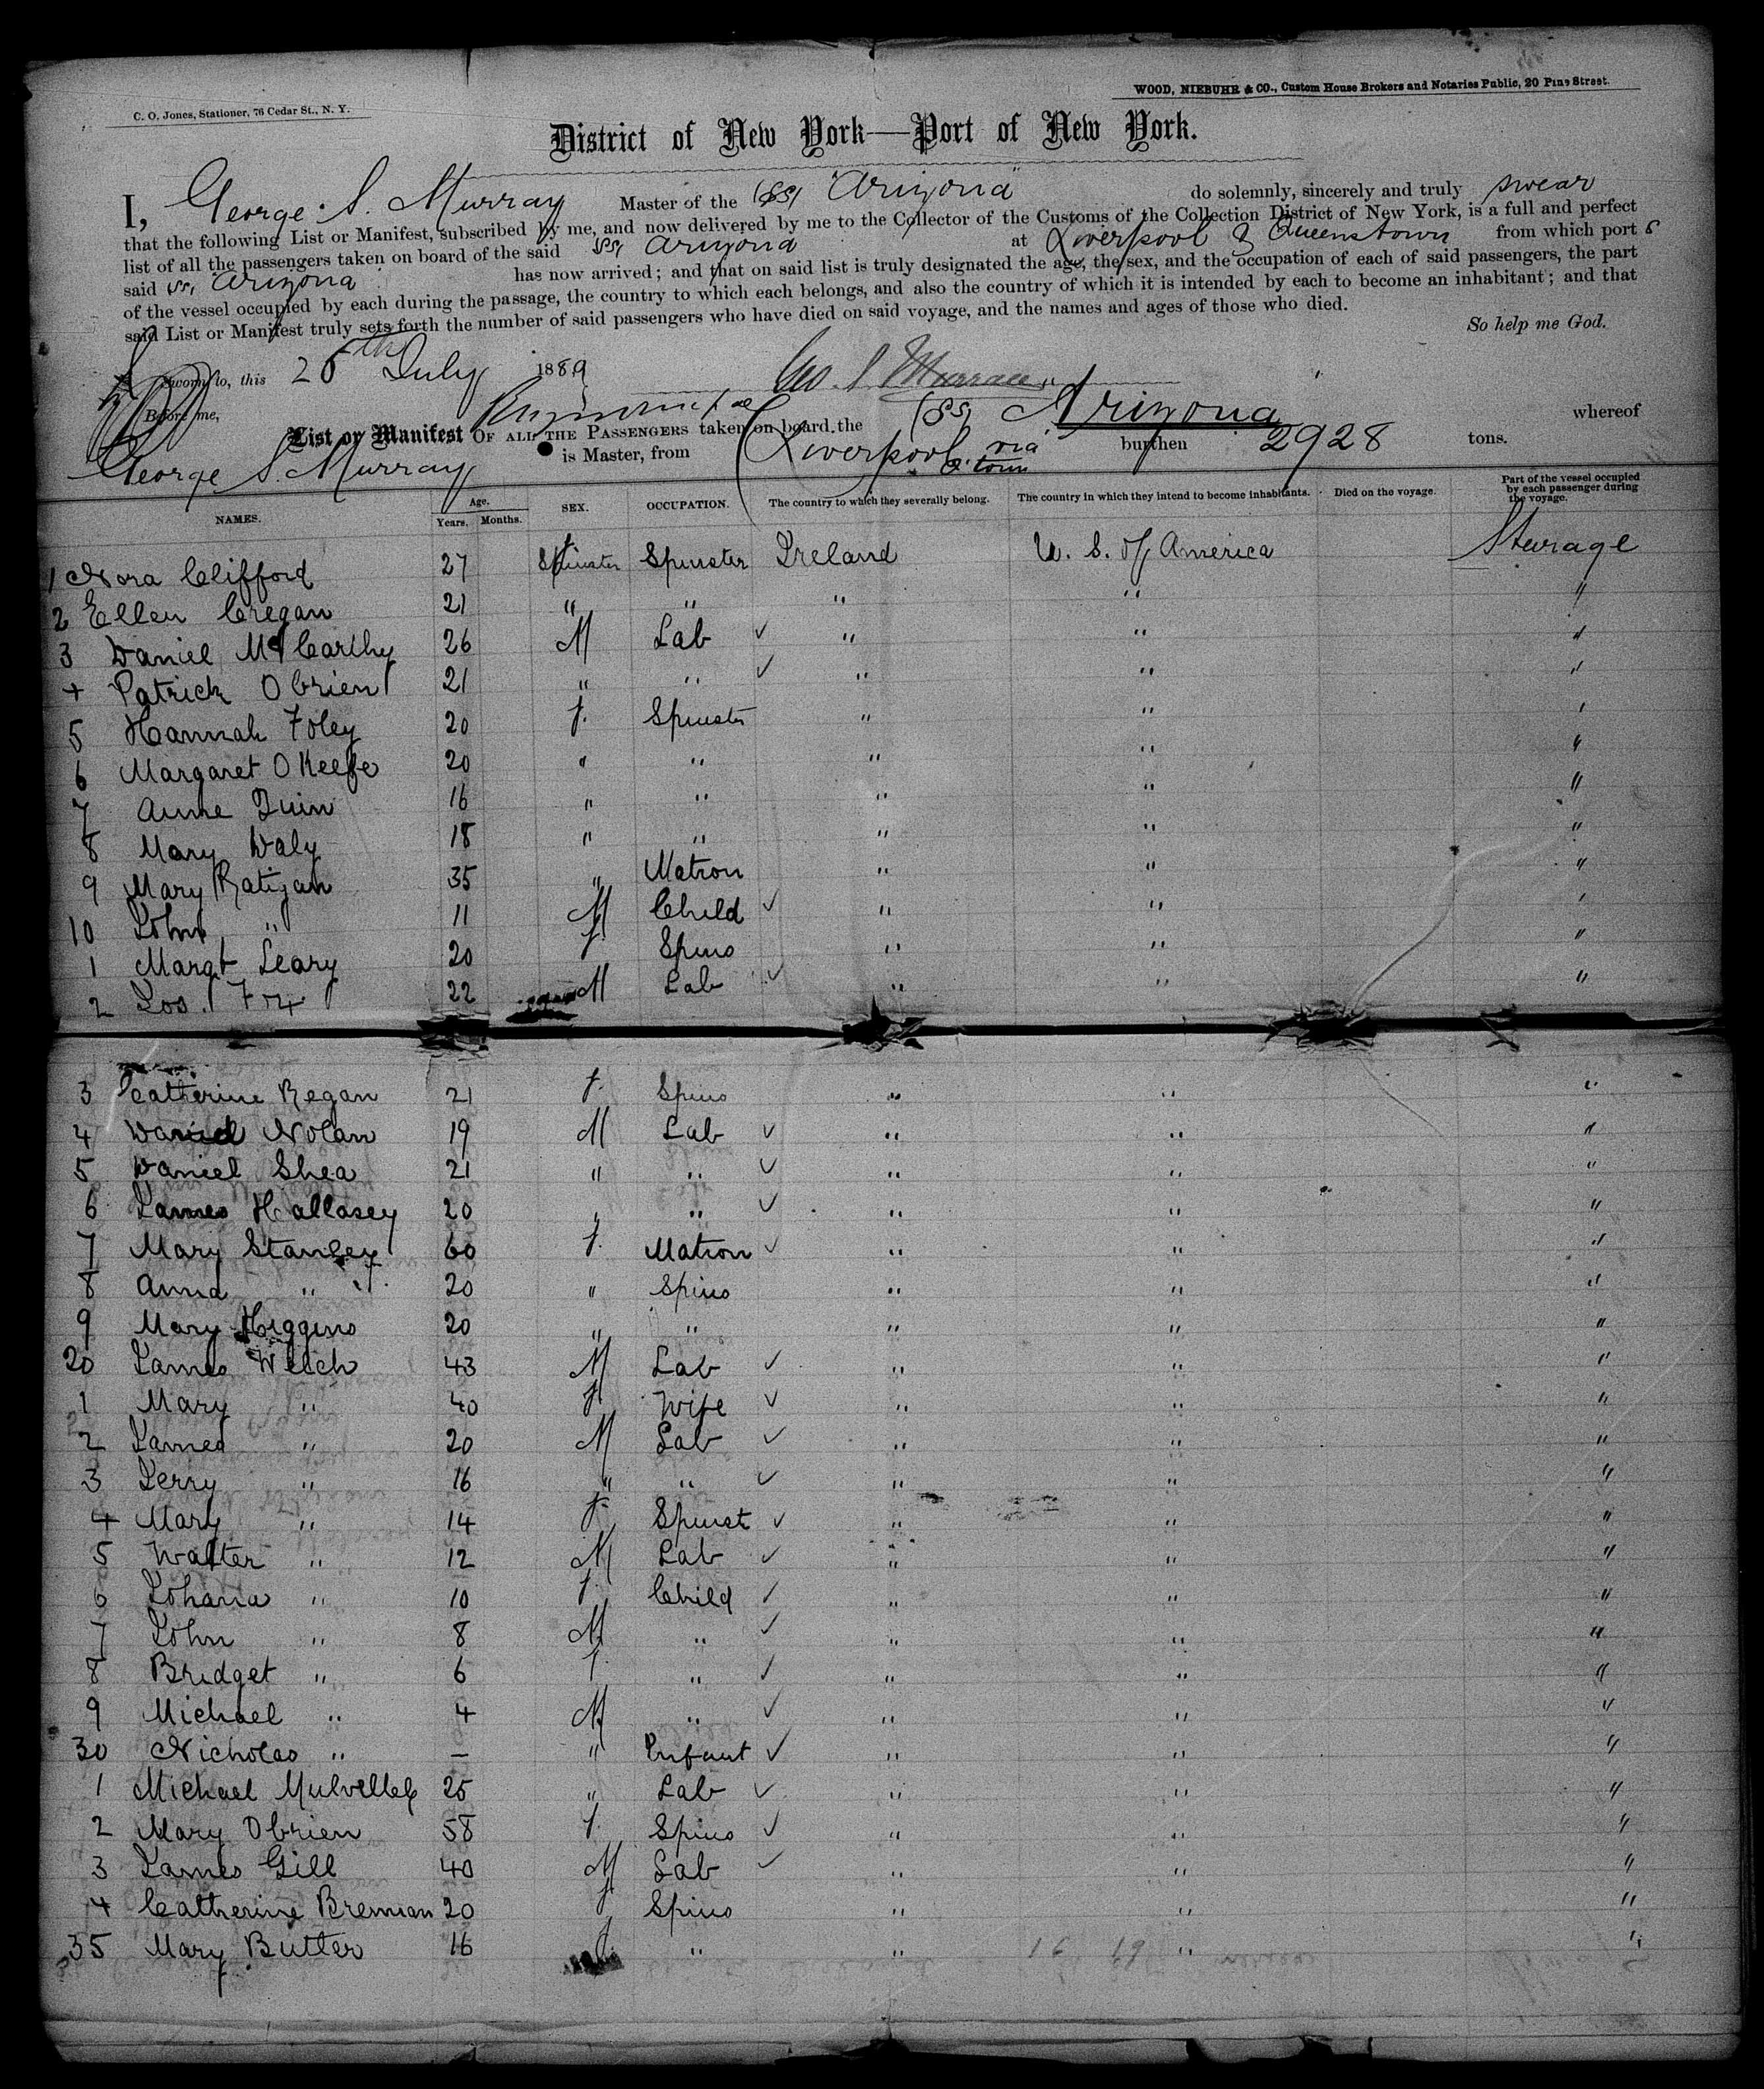 C. O. Jones, Stationer, 76 Cedar St., N. Y.
WOOD, NIEBUHR & CO., Custom House Brokers and Notaries Public, 20 Pine Street.
District of New York—Port of New York.
I, George S. Murray Master of the SS "Arizona" do solemnly, sincerely and truly swear
that the following List or Manifest, subscribed by me, and now delivered by me to the Collector of the Customs of the Collection District of New York, is a full and perfect
list of all the passengers taken on board of the said SS, Arizona at Liverpool & Queenstown from which port s
said SS, Arizona has now arrived; and that on said list is truly designated the age, the sex, and the occupation of each of said passengers, the part
of the vessel occupied by each during the passage, the country to which each belongs, and also the country of which it is intended by each to become an inhabitant; and that
said List or Manifest truly sets forth the number of said passengers who have died on said voyage, and the names and ages of those who died.
So help me God.
Sworn to, this 25th July 1889 Geo. S Murray
Before me,
List or Manifest OF ALL THE PASSENGERS taken on board the (SS) Arizona whereof
George S. Murray is Master, from Liverpool via Q.town burthen 2928 tons.
NAMES. Age. Years. Months. SEX. OCCUPATION. The country to which they severally belong. The country in which they intend to become inhabitants. Died on the voyage. Part of the vessel occupied by each passenger during the voyage.
1 Nora Clifford 27 f Spinster Ireland U. S. of America Steerage
2 Ellen Cregan 21 " " " " "
3 Daniel McCarthy 26 M Lab ✓ " " "
4 Patrick O Brien 21 " " ✓ " " "
5 Hannah Foley 20 f. Spinster " " "
6 Margaret O Keefe 20 " " " " "
7 Anne Quin 16 " " " " "
8 Mary Daly 18 " " " " "
9 Mary Ratigan 35 " Matron " " "
10 John " 11 M Child ✓ " " "
1 Margt Leary 20 f Spins " " "
2 Jos. 22 M Lab ✓ " " "
3 Catherine Regan 21 f. Spins " " "
4 Daniel Nolan 19 M Lab ✓ " " "
5 Daniel Shea 21 " " ✓ " " "
6 James Hallasey 20 " " ✓ " " "
7 Mary Stanley 60 f. Matron ✓ " " "
8 Anna " 20 " Spins " " "
9 Mary Higgins 20 " " " " "
20 James Welch 43 M Lab ✓ " " "
1 Mary " 40 f Wife ✓ " " "
2 James " 20 M Lab ✓ " " "
3 Jerry " 16 " " ✓ " " "
4 Mary " 14 f Spinst ✓ " " "
5 Walter " 12 M Lab ✓ " " "
6 Johana " 10 f Child ✓ " " "
7 John " 8 M " ✓ " " "
8 Bridget " 6 f " ✓ " " "
9 Michael " 4 M " ✓ " " "
30 Nicholas " — " Infant ✓ " " "
1 Michael 25 " Lab ✓ " " "
2 Mary Obrien 58 f Spins ✓ " " "
3 James Gill 40 M Lab ✓ " " "
4 Catherine Brennan 20 f Spins " " "
35 Mary Butler 16 f " " " "